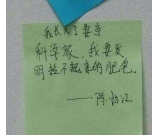 我长大了要当
科学家，我要发
明拉不起来的肥皂。
——陈